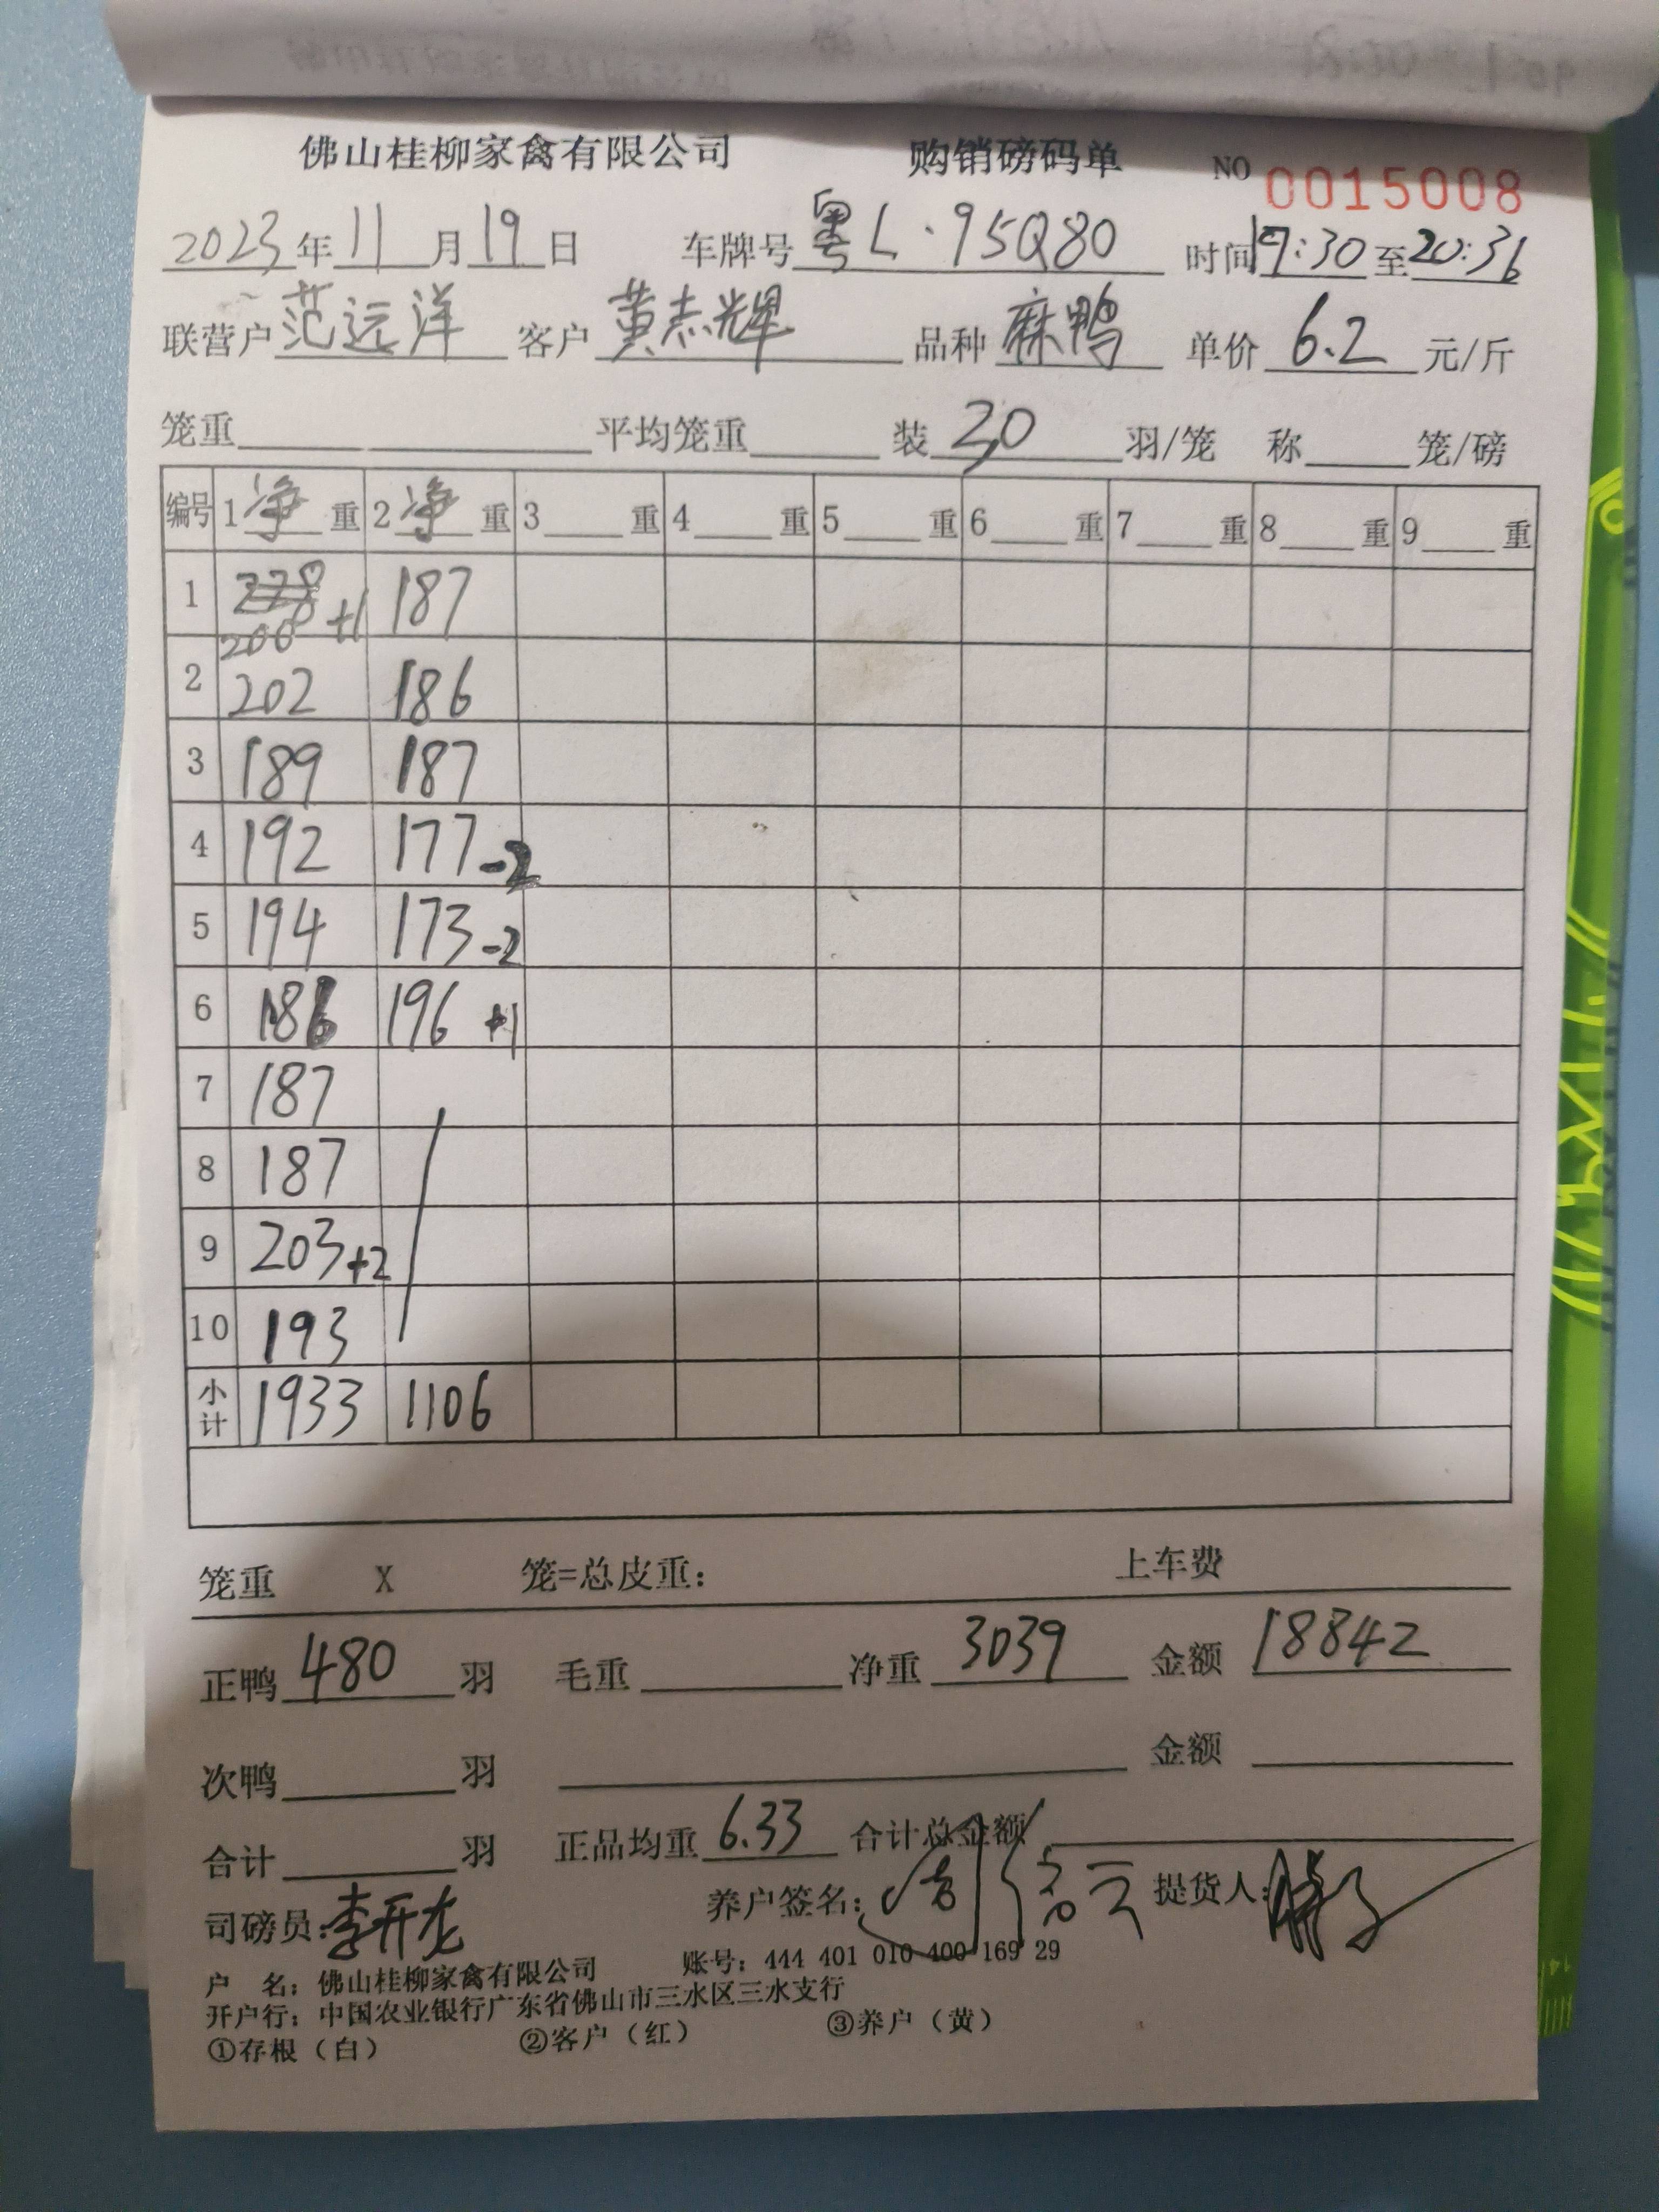 佛山桂柳家禽有限公司 购销磅码单 NO 0015008
2023年11月19日 车牌号粤L·95Q80 时间19:30至20:36
联营户范远洋 客户黄志辉 品种麻鸭 单价6.2元/斤
笼重 平均笼重 装30羽/笼 称 笼/磅
编号 1净重 2净重 3 重 4 重 5 重 6 重 7 重 8 重 9 重
1 200+1 187
2 202 186
3 189 187
4 192 177-2
5 194 173-2
6 186 196+1
7 187
8 187
9 203+2
10 193
小计 1933 1106
笼重 X 笼=总皮重: 上车费
正鸭480羽 毛重 净重3039 金额18842
次鸭 羽 金额
合计 羽 正品均重6.33 合计总金额
司磅员:李开龙 养户签名: 提货人:
户 名: 佛山桂柳家禽有限公司 账号: 444 401 010 400 169 29
开户行: 中国农业银行广东省佛山市三水区三水支行
①存根(白) ②客户(红) ③养户(黄)